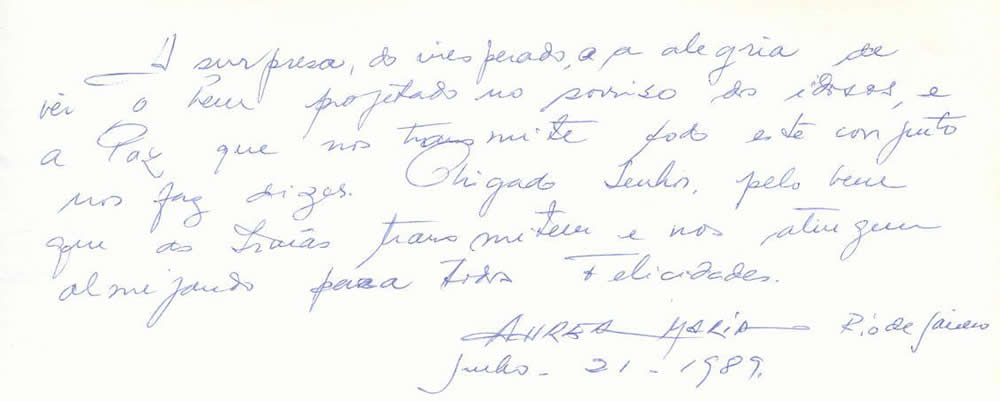 A surpresa, do inesperado, e a alegria de
ver o bem projetado no sorriso dos idosos, e
a Paz que nos transmite todo este conjunto
nos faz dizer. Obrigado Senhor, pelo bem
que as Irmãs transmitem e nos atingem
almejando para todos Felicidades.
AUREA MARIA Rio de Janeiro
Junho - 21 - 1989.